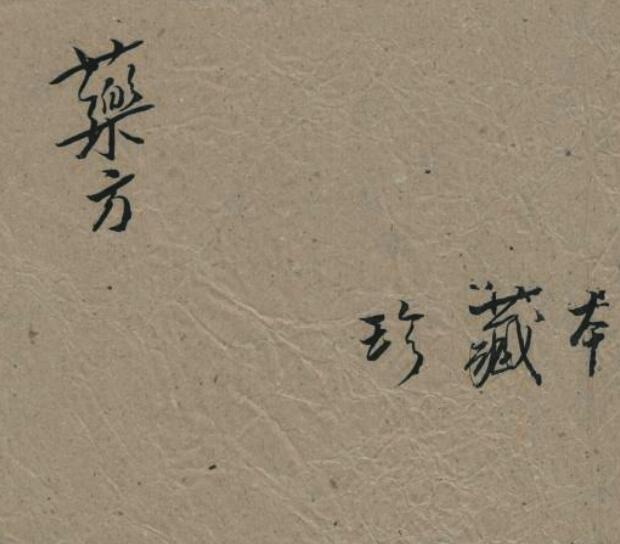 藥方
珍藏本